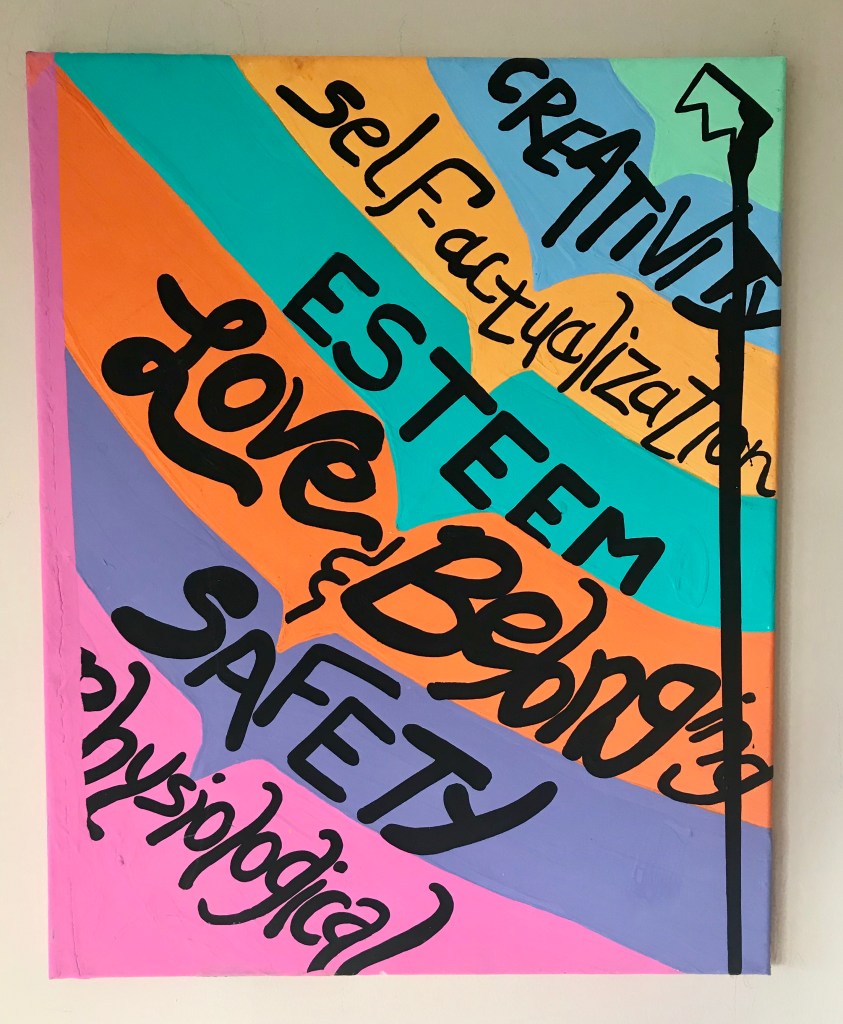 CREATiViTy
self-actualization
ESTEEM
Love & Belonging
SAFETY
physiological